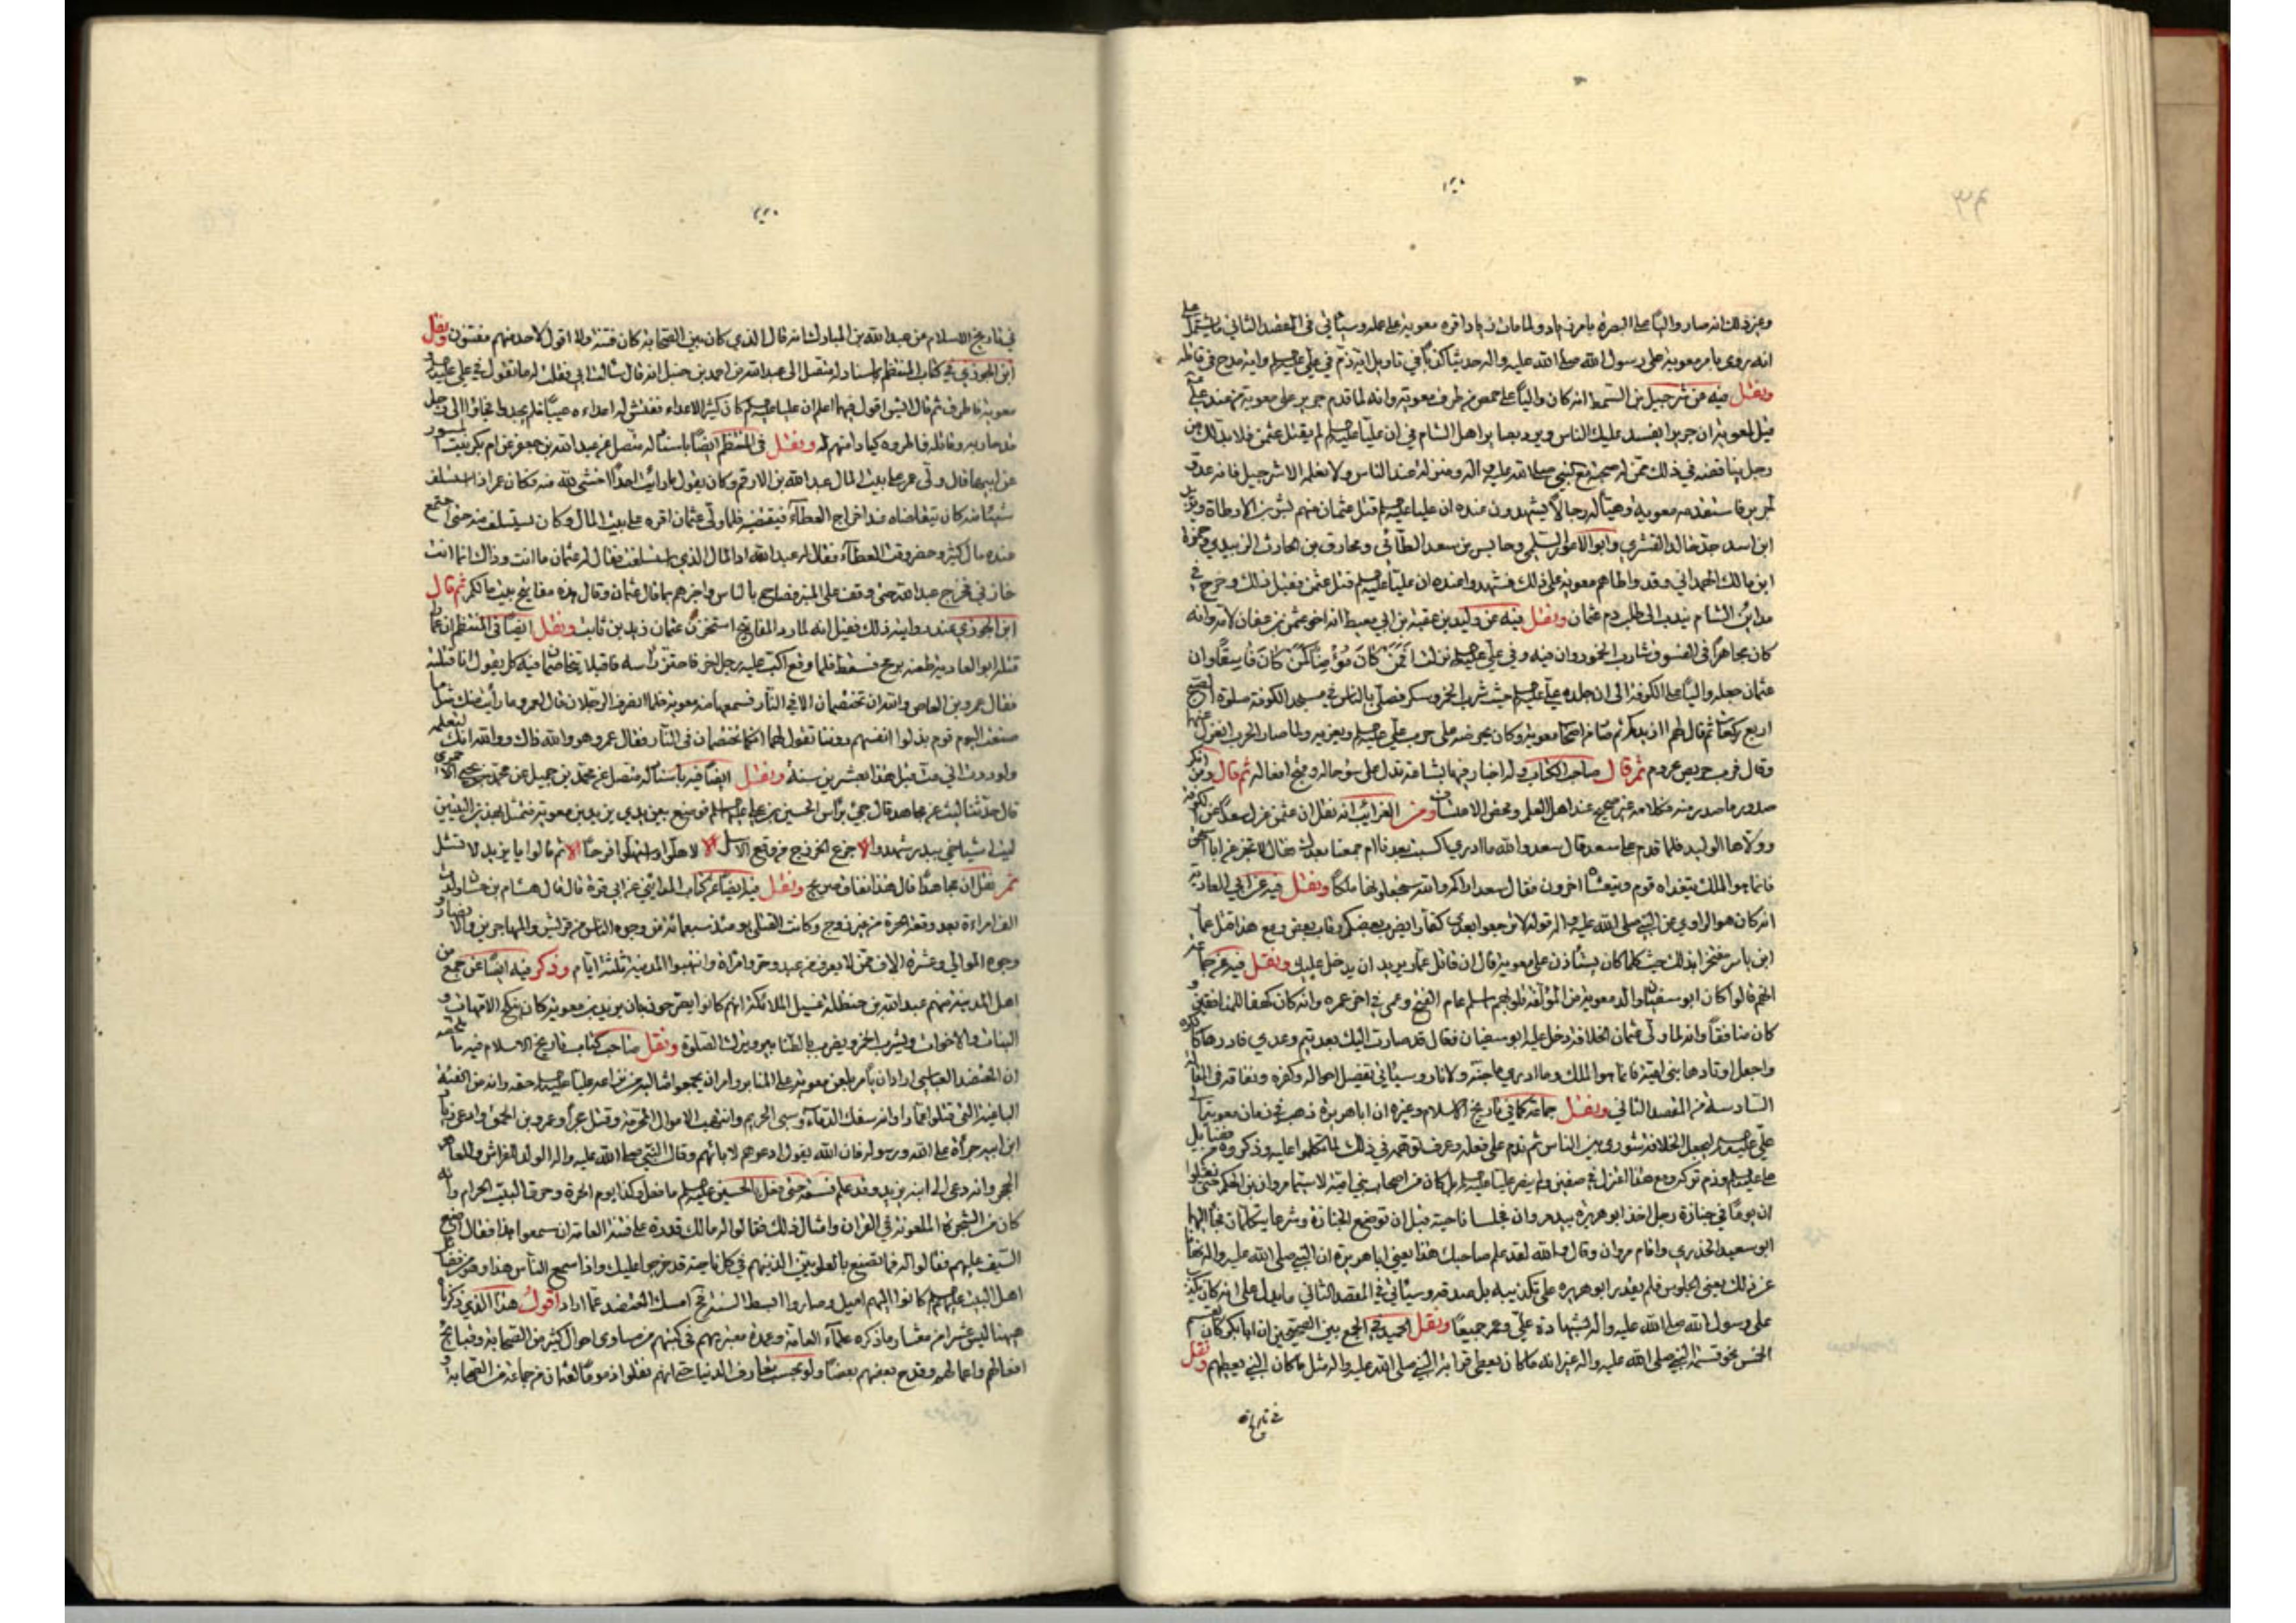 وغير ذلك انه صار والياً على البصرة بامر زياد ولما مات زياد اقره معوية على عمله وسيأتي في المقصد الثاني ما يشتمل على
انه روى بامر معوية على رسول الله صلى الله عليه واله حديثا كذباً في تاويل اية ذم في علي عليه السلم واية مدح في قاتله
ونقل فيه عن شرحبيل بن السمط انه كان والياً على حمص من طرف معوية وانه لما قدم جرير على معوية من عند علي
قيل لمعوية ان جريرا يفسد عليك الناس ويرد بصاير اهل الشام في ان علياً عليه السلم لم يقتل عثمن فلا بد لك من
رجل يناقضه في ذلك ممن له صحبة مع النبي صلى الله عليه واله ومنزلة عند الناس ولا نعلمه الا شرحبيل فانه عدو
لجرير فاستقدمه معوية وهيأ له رجالاً يشهدون عنده ان عليا عليه السلم قتل عثمان منهم بسر بن الارطاة ويزيد
ابن اسد جد خالد القسري وابو الاعور السلمي وحابس بن سعد الطائي ومخارق بن الحارث الزبيدي وحمزة
ابن مالك الهمداني وقد واطاهم معوية على ذلك فشهدوا عنده ان علياً عليه السلم قتل عثمن فقبل ذلك وخرج في
مداين الشام يندب الى طلب دم عثمان ونقل فيه عن وليد بن عقبة بن ابي معيط انه اخو عثمن بن عفان لامه وانه
كان مجاهراً في الفسوق شارب الخمور وان فيه وفي علي عليه السلم نزلت افمن كان مؤمناً كمن كان فاسقاً وان
عثمان جعله والياً على الكوفة الى ان جلده علي عليه السلم حيث شرب الخمر وسكر فصلى بالناس في مسجد الكوفة صلوة الصبح
اربع ركعات ثم قال لهم ازيدكم ثم صار من اصحاب معوية وكان يحرضه على حرب علي عليه السلم ويغريه ولما صار الحرب اعتزل عنها
ثم قال صاحب الكتاب وله اخبار فيها بشاعة تدل على سوء حاله وقبح افعاله ثم قال ومن انكر
صدور ما صدر منه فكلامه غير صحيح عند اهل النقل ومحض الاعتساف ومن الغرائب انه نقل ان عثمن عزل سعداً عن الكوفة
وولاها الوليد فلما قدم على سعد قال سعد والله ما ادري اكست بعدنا ام حمقنا بعدك فقال لا تجزعن ابا اسحق
فانما هو الملك يتغداه قوم ويتعشاه اخرون فقال سعد اراكم والله ستجعلونها ملكاً ونقل فيه عن ابي الغادية
انه كان هو الراوي عن النبي صلى الله عليه واله قوله لا ترجعوا بعدي كفاراً يضرب بعضكم رقاب بعض ومع هذا قتل عمار
ابن ياسر مفتخرا بذلك حيث كلما كان يستأذن على معوية قال ان قاتل عمار يريد ان يدخل عليك ونقل فيه عن جماعة
انهم قالوا كان ابو سفيان والد معوية من المؤلفة قلوبهم اسلم عام الفتح وعمي في اخر عمره وانه كان كهفا للمنافقين و
كان منافقاً وانه لما ولي عثمان الخلافة دخل عليه ابو سفيان فقال قد صارت اليك بعد تيم وعدي فادرها كالكرة
واجعل اوتادها بني امية فانما هو الملك وما ادري ما جنة ولا نار وسيأتي تفصيل احواله وكفره ونفاقه في المقالة
السادسة من المقصد الثاني ونقل جماعة كما في تاريخ الاسلام وغيره ان ابا هريرة ذهب في زمان معوية الى
علي عليه السلم ليجعل الخلافة شورى بين الناس ثم ندم على فعله وعرف لؤمه في ذلك لما تكلموا عليه وذكروه من فضايل
علي عليه السلم وذم تركه ومع هذا اعتزل في صفين ولم ينصر علياً عليه السلم بل كان من اصحاب بني امية لا سيما مروان بن الحكم حتى نقلوا
ان يوماً في جنازة رجل اخذ ابو هريرة بيد مروان فجلسا ناحية قبل ان توضع الجنازة وشرعا يتكلمان فجاء اليهما
ابو سعيد الخدري واقام مروان وقال والله لقد علم صاحبك هذا يعني ابا هريرة ان النبي صلى الله عليه واله نهانا
عن ذلك يعني الجلوس فلم يقدر ابو هريرة على تكذيبه بل صدقه وسيأتي في المقصد الثاني ما يدل على انه كان يكذب
على رسول الله صلى الله عليه واله بشهادة علي وعمر جميعاً ونقل الحميدي في الجمع بين الصحيحين ان ابا بكر كان يقسم
الخمس نحو قسمة النبي صلى الله عليه واله غير انه ما كان يعطي قرابة النبي صلى الله عليه واله مثل ما كان النبي يعطيهم ونقل
في تاريخ الاسلام عن عبد الله بن المبارك انه قال الذي كان بين الصحابة كان فتنة ولا اقول لاحد منهم مفتون ونقل
ابن الجوزي في كتاب المنتظم باسناد له متصل الى عبد الله بن احمد بن حنبل انه قال سألت ابي فقلت له ما تقول في علي عليه السلم و
معوية فاطرق ثم قال ايش اقول فيهما اعلم ان عليا عليه السلم كان كثير الاعداء ففتش له اعداءه عيباً فلم يجدوا فجاؤا الى رجل
قد حاربه وقاتله فاطروه كياداً منهم له ونقل في المنتظم ايضاً باسناد له متصل عن عبد الله بن جعفر عن ام بكر بنت المسور
عن ابيها قال ولي عمر على بيت المال عبد الله بن الارقم وكان يقول ما رأيت احداً اخشى لله منه فكان عمر اذا استسلف
شيئا منه كان يتقاضاه عند اخراج العطاء فيقضيه فلما ولي عثمان اقره على بيت المال وكان يستسلف منه حتى اجتمع
عنده مال كثير وحضر وقت العطاء فقال له عبد الله اد المال الذي استسلفت فقال له عثمان ما انت وذاك انما انت
خازني فخرج عبد الله حتى وقف على المنبر فصاح بالناس واخبرهم بما قال عثمان وقال هذه مفاتيح بيت مالكم ثم قال
ابن الجوزي عند روايته ذلك فقيل انه لما رد المفاتيح استخزن عثمان زيد بن ثابت ونقل ايضاً في المنتظم ان عماراً
قتله ابو الغادية طعنه برمح فسقط فلما وقع اكب عليه رجل اخر فاحتز رأسه فاقبلا يختصمان فيه كل يقول انا قتلته
فقال عمرو بن العاص والله ان تختصمان الا في النار فسمعها منه معوية فلما انصرف الرجلان قال لعمرو ما رأيت مثل ما
صنعت اليوم قوم بذلوا انفسهم دوننا تقول لهما انكما تختصمان في النار فقال عمرو هو والله ذاك ووالله انك لتعلمه
ولوددت اني مت قبل هذا بعشرين سنة ونقل ايضاً فيه باسناد له متصل عن محمد بن حميد عن محمد بن يحيى الاحمري
قال حدثنا ليث عن مجاهد قال جيئ براس الحسين بن علي عليه السلم فوضع بين يدي يزيد بن معوية فتمثل بهذين البيتين
ليت اشياخي ببدر شهدوا الا جزع الخزرج من وقع الاسل الا لاهلوا واستهلوا فرحاً الا ثم قالوا يا يزيد لا تشل
ثم نقل ان مجاهداً قال هذا نفاق صريح ونقل فيه ايضاً عن كتاب المدايني عن ابي قرة قال قال هشام بن حسان ولدت
الف امراءة بعد وقعة الحرة من غير زوج وكانت القتلى يومئذ سبعمائة من وجوه الناس من قريش والمهاجرين والانصار و
وجوه الموالي وعشرة الاف ممن لا يعرف من عبد وحر وامراة وانتهبوا المدينة ثلثة ايام وذكر فيه ايضاً عن جمع من
اهل المدينة منهم عبد الله بن حنظلة غسيل الملائكة انهم كانوا يصرحون بان يزيد بن معوية كان ينكح الامهات و
البنات والاخوات ويشرب الخمر ويضرب بالطنابير ويترك الصلوة ونقل صاحب كتاب تاريخ الاسلام فيه ما ملخصه
ان المعتضد العباسي اراد ان يأمر بلعن معوية على المنابر
الباغية التي قتلوا عماراً وانه سفك الدماء وسبى الحريم وانتهب الاموال المحرمة وقتل حجراً وعمرو بن الحمق وادعى زياد
ابن ابيه جرأة على الله ورسوله فان الله يقول ادعوهم لابائهم وقال النبي صلى الله عليه واله الولد للفراش وللعاهر
الحجر وانه دعى الى ابنه يزيد وقد علم فسقه حتى فعل بالحسين عليه السلم ما فعل وكذا يوم الحرة وحرق البيت الحرام وانه
كان من الشجرة الملعونة في القران وامثال ذلك فقالوا له مالك قدرة على فتنة العامة ان سمعوا هذا فقال اضع
السيف عليهم فقالوا له فما تصنع بالعلويين الذين هم في كل ناحية قد خرجوا عليك واذا سمع الناس هذا ومن فضايل
اهل البيت عليهم السلم كانوا اليهم اميل وصاروا ابسط السنة فحينئذ امسك المعتضد عما اراد اقول هذا الذي ذكرناه
هيهنا ليس عشراً من معشار ما ذكره علماء العامة وعمدة معتبريهم في كتبهم من مساوي احوال كثير من الصحابة وقبايح
افعالهم واعمالهم وقدح بعضهم بعضاً ولو بحسب تعارف الدنيا حتى انهم نقلوا ذموماً لعثمان من جماعة من الصحابة و